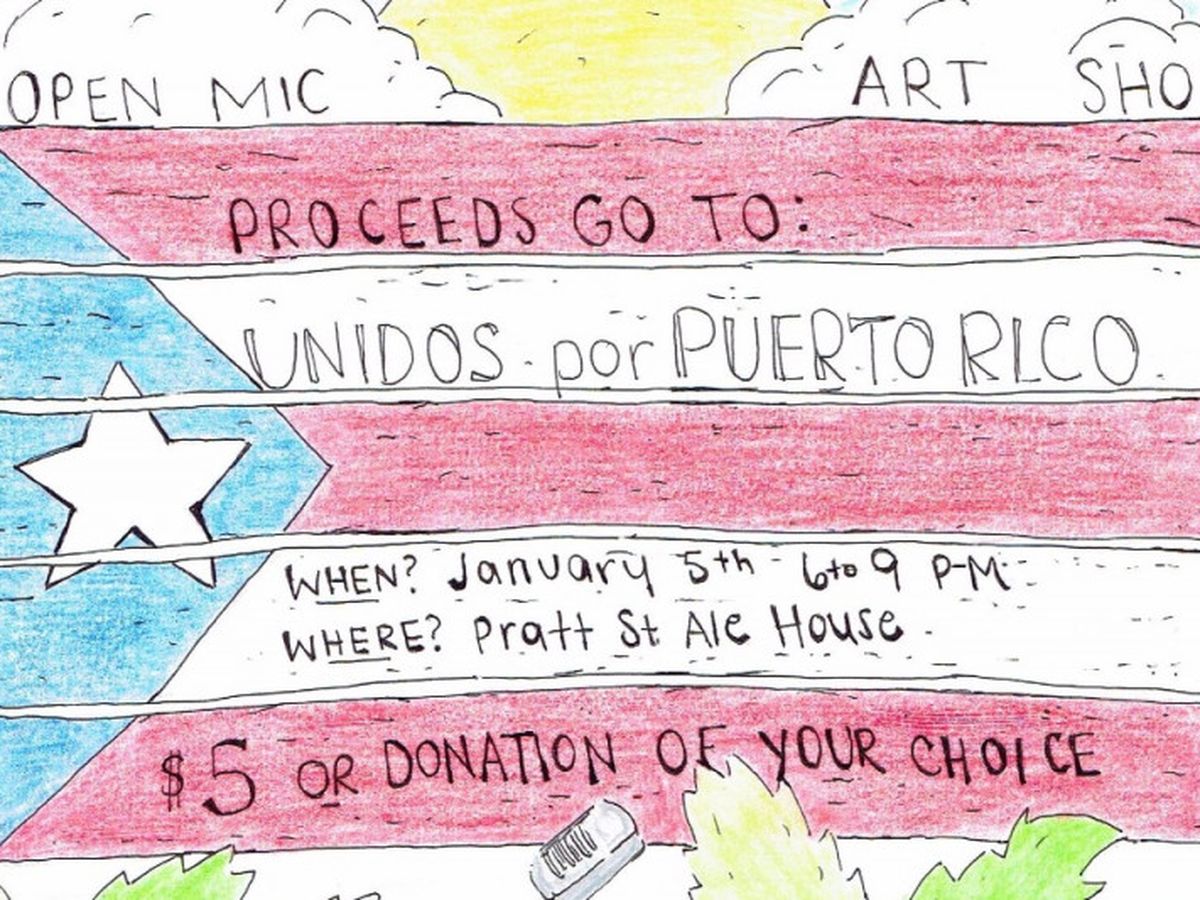 OPEN MIC ART SHO
PROCEEDS GO TO:
UNIDOS por PUERTO RICO
WHEN? January 5th - 6 to 9 P-M
WHERE? Pratt St Ale House
$5 OR DONATION OF YOUR CHOICE